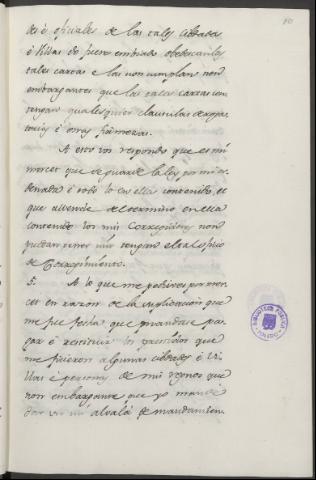 des é oficiales de las tales cibdades
é Villas do fuere embiado obedescan las
tales cartas e las non cumplan non
embargantes que las tales cartas con-
tengan qualesquier clausulas deroga-
torias é otras firmezas.
A esto vos respondo que es mi
merced que se guarde la ley por mi or-
denada é todo lo en ella contenido, et
que allende del termino en ella
contenido los mis Corregidores non
puedan tener nin tengan el tal oficio
de Corregimiento.
5. A lo que me pedistes por mer-
ced en razon de la suplicacion que
me fue fecha que mandase pa-
gar é restituir los
me ficieron algunas cibdades é Vi-
llas é personas de mis regnos que
non embargante que yo mandé
dar un mi alvalá de mandamien-
10
BIBLIOTECA PUBLICA
TOLEDO